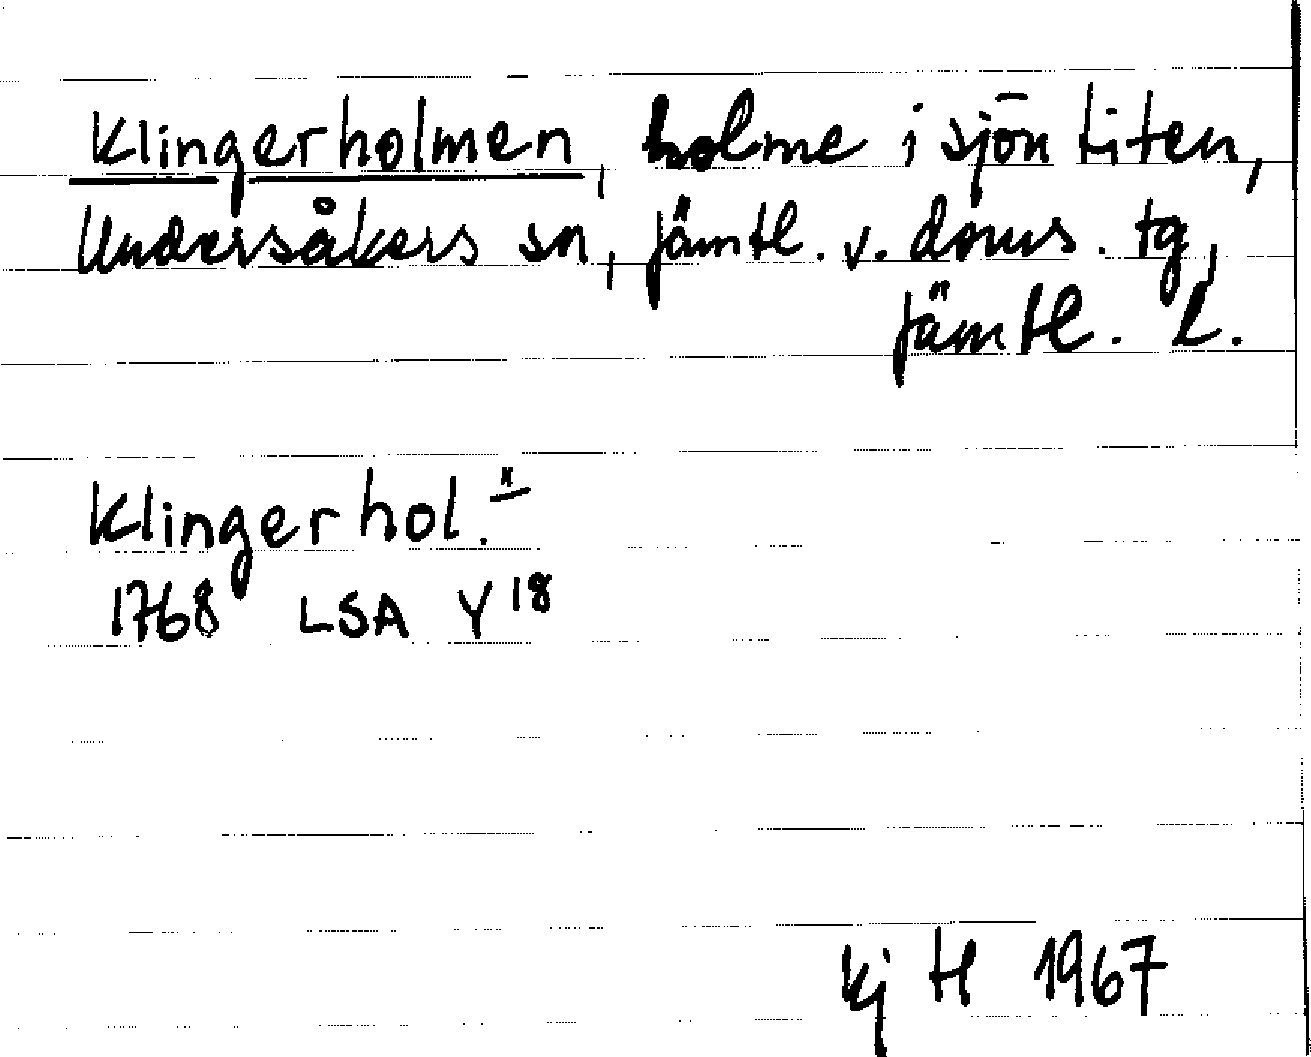 Klingerholmen, holme i sjön Liten,
Undersåkers sn, Jämtl. v. doms. tg,
Jämtl. L.
Klingerhol.ⁿ
1768 LSA Y 18
Kj H 1967